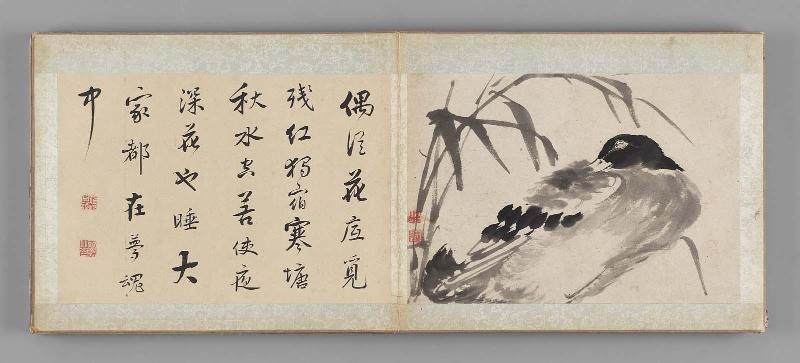 偶從花底覓
残紅獨宿寒塘
秋水空若使夜
深花也睡大
家都在夢魂
中